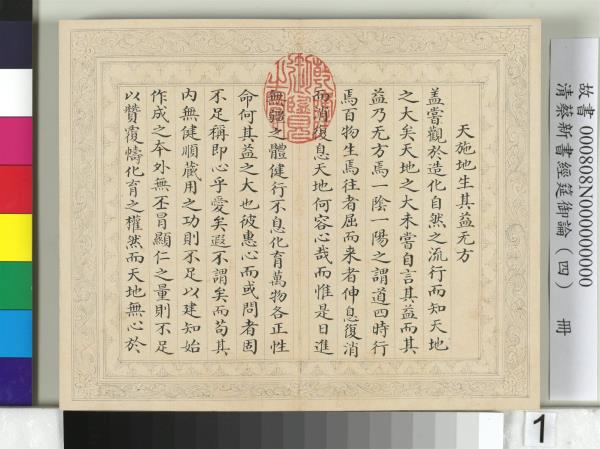 天施地生其益无方
蓋嘗觀於造化自然之流行而知天地
之大矣天地之大未嘗自言其益而其
益乃无方焉一陰一陽之謂道四時行
焉百物生焉往者屈而来者伸息復消
而消復息天地何容心哉而惟是日進
無疆之體健行不息化育萬物各正性
命何其益之大也彼惠心而或問者固
不足稱即心乎愛矣遐不謂矣而苟其
內無健順藏用之功則不足以建知始
作成之本外無丕冒顯仁之量則不足
以贊覆幬化育之權然而天地無心於
乾隆御覽之寶
故書 000808N000000000
清蔡新書經筵御論（四） 冊
1